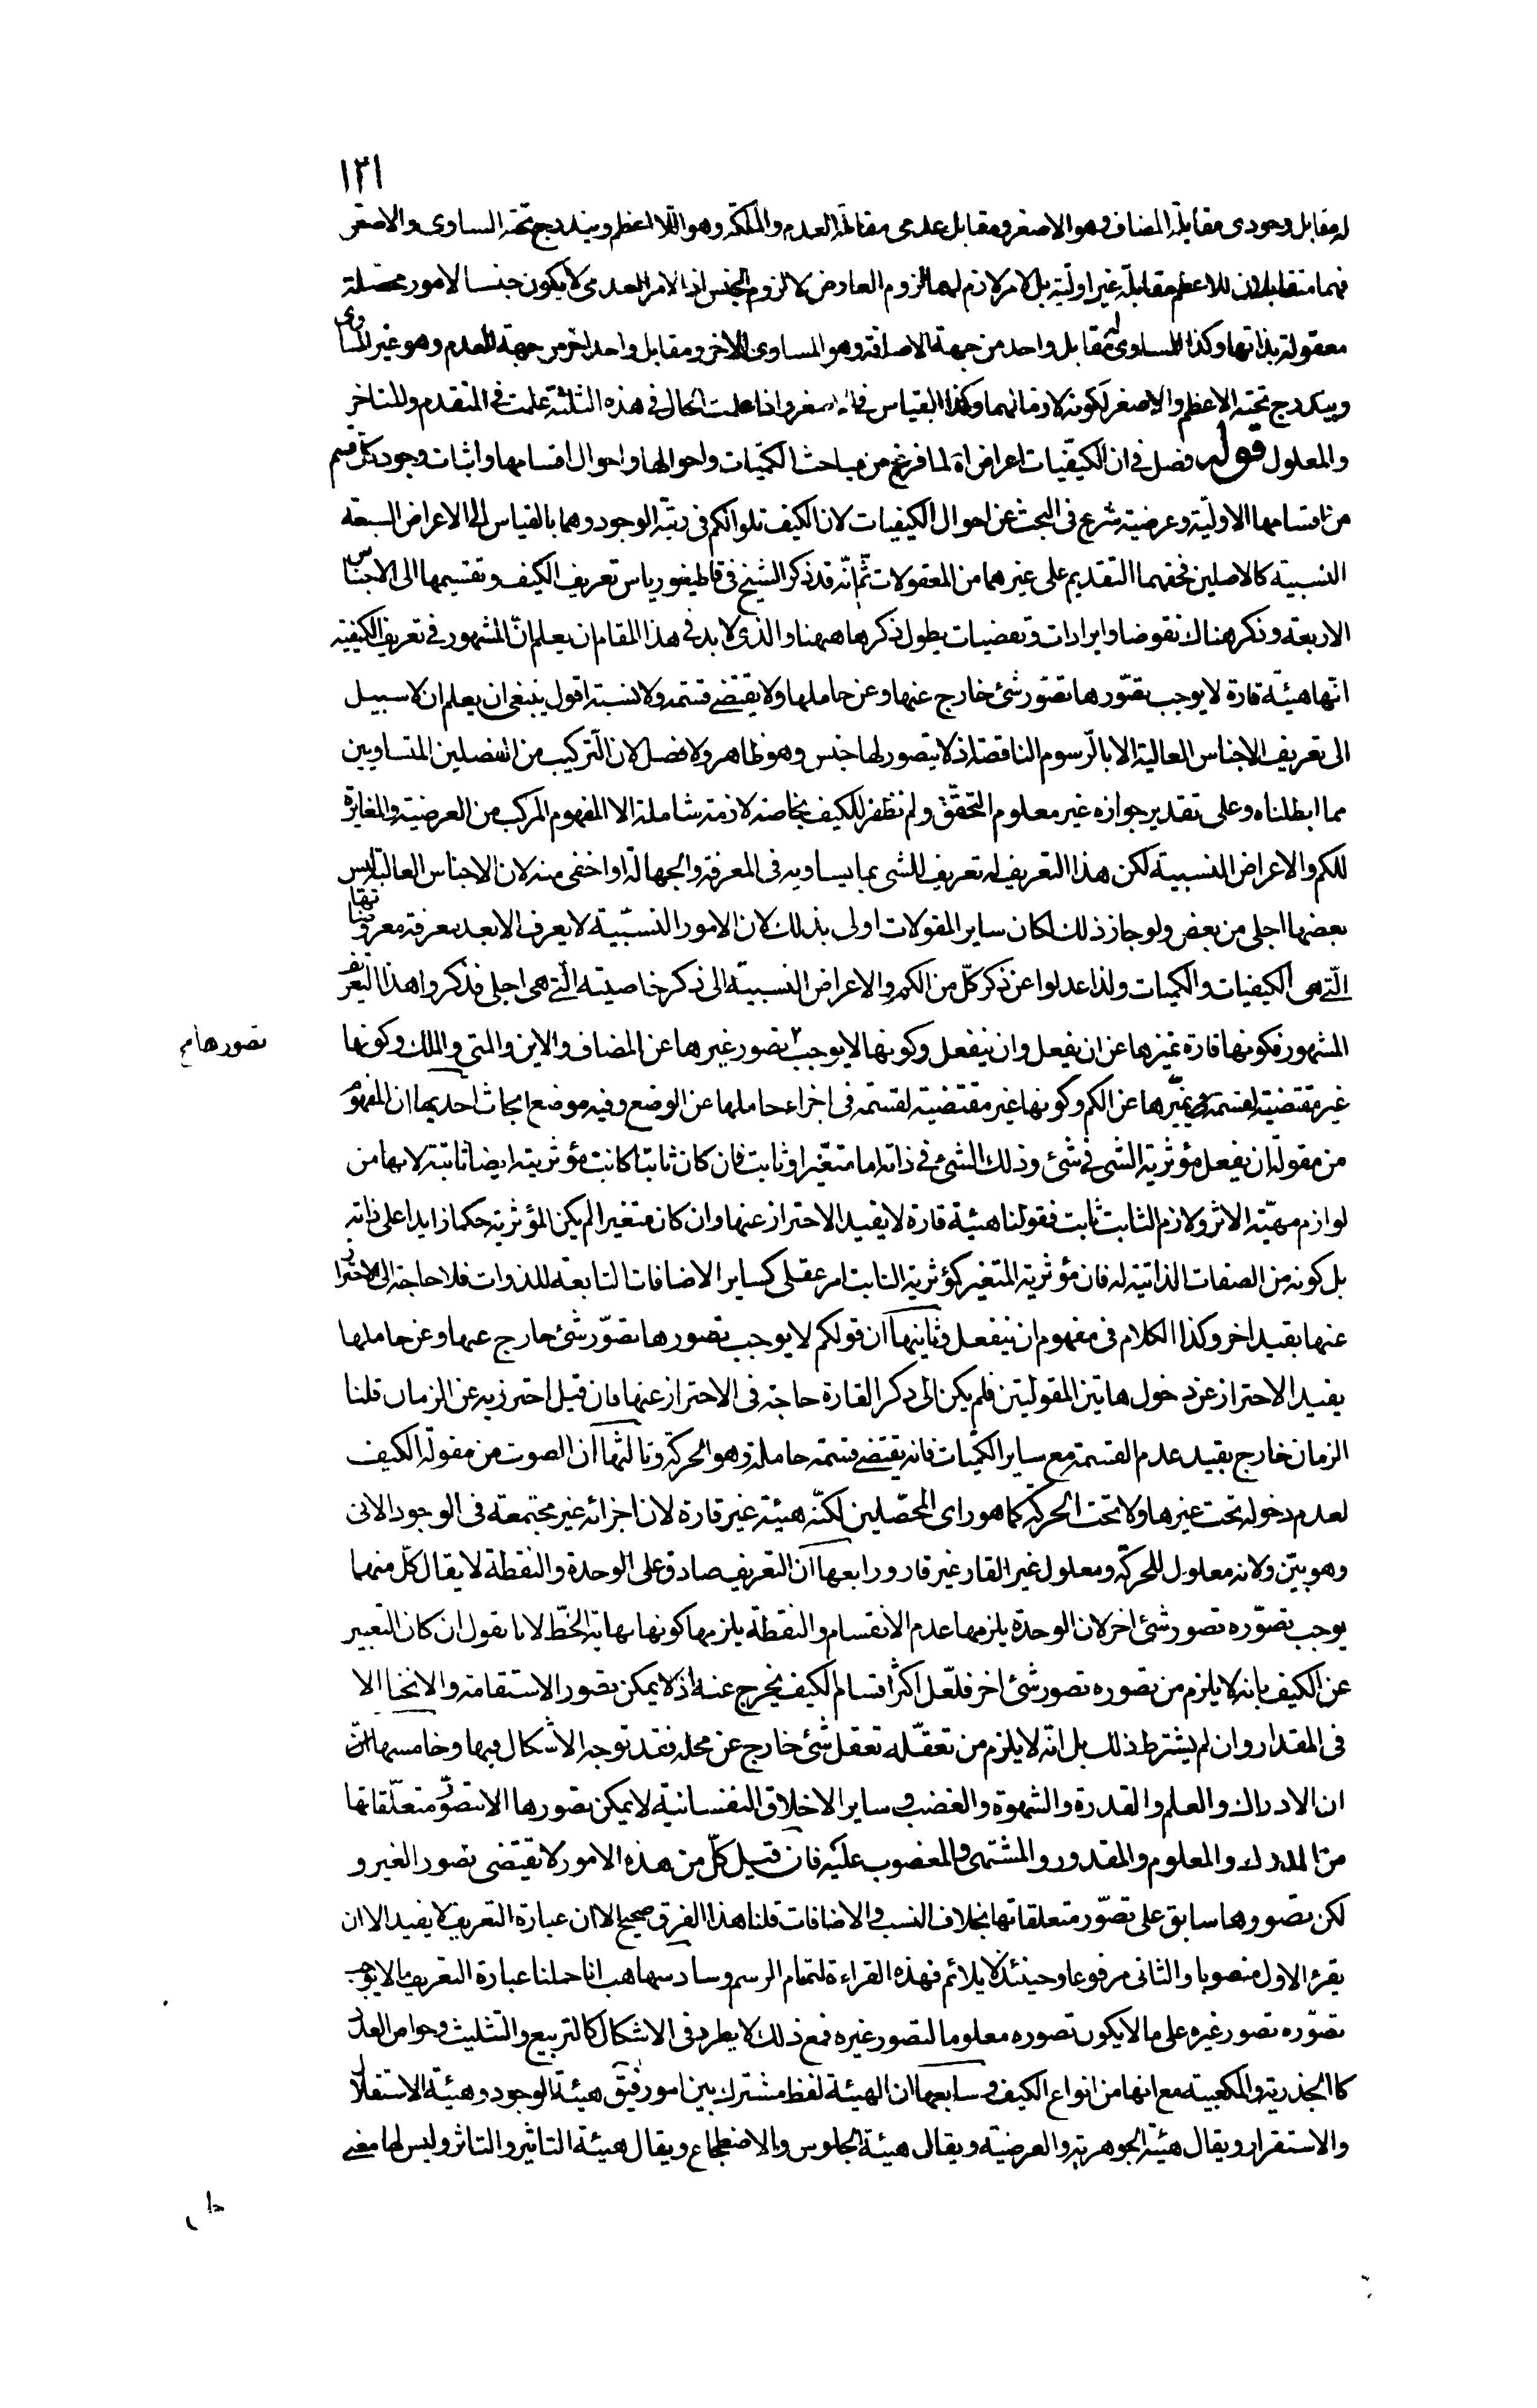 ١٢١
له مقابل وجودى مقابلة المضاف وهو الاصغر ومقابل عدمى مقابلة العدم والملكة وهو اللا اعظم ويندرج تحته المساوى والاصغر
فهما متقابلان للاعظم مقابلة غير اولية بل لامر لازم لهما لزوم العارض لا لزوم الجنس اذ الامر العدمى لا يكون جنسا لامور محصلة
معقولة بذاتها وكذا المساوى له مقابل واحد من جهة الاضافة وهو المساوى للاخر ومقابل واحد اخر من جهة العدم وهو غير المساوى
ويندرج تحته الاعظم والاصغر لكونه لازما لهما وكذا القياس فى الاصغر واذا علمت الحال فى هذه الثلثة علمت فى المتقدم والمتاخر
والمعلول قوله فصل فى ان الكيفيات اعراض اه لما فرغ من مباحث الكميات واحوالها واحوال اقسامها واثبات وجود كل قسم
من اقسامها الاولية وعرضيته شرع فى البحث عن احوال الكيفيات لان الكيف تلو الكم فى رتبة الوجود وهما بالقياس الى الاعراض السبعة
النسبية كالاصلين فحقهما التقديم على غيرهما من المعقولات ثم انه قد ذكر الشيخ فى قاطيغورياس تعريف الكيف وتقسيمها الى الاجناس
الاربعة وذكر هناك نقوضا وايرادات وتعضيات يطول ذكرها ههنا والذى لا بد فى هذا المقام ان يعلم ان المشهور فى تعريف الكيفية
انها هيئة قارة لا يوجب تصورها تصور شئ خارج عنها وعن حاملها ولا يقتضى قسمة ولا نسبة اقول ينبغى ان يعلم ان لا سبيل
الى تعريف الاجناس العالية الا بالرسوم الناقصة اذ لا يتصور لها جنس وهو ظاهر ولا فصل لان التركيب من الفصلين المتساويين
مما ابطلناه وعلى تقدير جوازه غير معلوم التحقق ولم نظفر للكيف بخاصة لازمة شاملة الا المفهوم المركب من العرضية والمغايرة
للكم والاعراض النسبية لكن هذا التعريف له تعريف للشى بما يساويه فى المعرفة والجهالة او اخفى منه لان الاجناس العالية ليس
بعضها اجلى من بعض ولو جاز ذلك لكان ساير المقولات اولى بذلك لان الامور النسبية لا يعرف الا بعد معرفة معروضاتها
التى هى الكيفيات والكميات ولذا عدلوا عن ذكر كل من الكم والاعراض النسبية الى ذكر خاصيته التى هى اجلى فذكروا هذا التعريف
المشهور فكونها قارة تميزها عن ان يفعل وان ينفعل وكونها لا يوجب تصور غيرها عن المضاف والاين والمتى والملك وكونها
تصورها صح
غير مقتضية لقسمة يميزها عن الكم وكونها غير مقتضية لقسمة فى اجزاء حاملها عن الوضع وفيه موضع ابحاث احديها ان المفهوم
من مقولة ان يفعل مؤثرية الشى فى شئ وذلك الشئ فى ذاته اما متغير او ثابت فان كان ثابتا كانت مؤثريته ايضا ثابتة لانها من
لوازم مهية الاثر ولازم الثابت ثابت فقولنا هيئة قارة لا يفيد الاحتراز عنها وان كان متغيرا لم يكن المؤثرية حكما زايدا على ذاته
بل كونه من الصفات الذاتية له فان مؤثرية المتغير كمؤثرية الثابت امر عقلى كساير الاضافات التابعة للذوات فلا حاجة الى الاحتراز
عنها بقيد اخر وكذا الكلام فى مفهوم ان ينفعل وثانيها ان قولكم لا يوجب تصورها تصور شئ خارج عنها وعن حاملها
يفيد الاحتراز عن دخول هاتين المقولتين فلم يكن الى ذكر القارة حاجة فى الاحتراز عنها فان قيل احترز به عن الزمان قلنا
الزمان خارج بقيد عدم القسمة مع ساير الكميات فانه يقتضى قسمة حامله وهو الحركة وثالثها ان الصوت من مقولة الكيف
لعدم دخوله تحت غيرها ولا تحت الحركة كما هو راى المحصلين لكنه هيئة غير قارة لان اجزائه غير مجتمعة فى الوجود الانى
وهو بين ولانه معلول للحركة ومعلول غير القار غير قار ورابعها ان التعريف صادق على الوحدة والنقطة لا يقال كل منهما
يوجب تصوره تصور شئ اخر لان الوحدة يلزمها عدم الانقسام والنقطة يلزمها كونها نهاية الخط لانا نقول ان كان التعبير
عن الكيف بانه لا يلزم من تصوره تصور شئ اخر فلعل اكثر اقسام الكيف يخرج عنه اذ لا يمكن تصور الاستقامة والانحنا الا
فى المقدار وان لم يشترط ذلك بل انه لا يلزم من تعقله تعقل شئ خارج عن محله فقد توجه الاشكال فيها وخامسها ان
ان الادراك والعلم والقدرة والشهوة والغضب وساير الاخلاق النفسانية لا يمكن تصورها الا بتصور متعلقاتها
من المدرك والمعلوم والمقدور والمشتهى والمغضوب عليه فان قيل كل من هذه الامور لا تقتضى تصور الغير و
لكن تصورها سابق على تصور متعلقاتها بخلاف النسب والاضافات قلنا هذا الفرق صحيح الا ان عبارة التعريف لا يفيد الا ان
يقرء الاول منصوبا والثانى مرفوعا وحينئذ لا يلائم فهذه القراءة لتمام الرسم وسادسها هب انا حملنا عبارة التعريف ما لا يوجب
تصوره تصور غيره على ما لا يكون تصوره معلوما لتصور غيره فمع ذلك لا يطرد فى الاشكال كالتربيع والتثليث وخواص العدد
كالجذرية والمكعبية مع انها من انواع الكيف وسابعها ان الهيئة لفظ مشترك بين امور فيق هيئة الوجود وهيئة الاستقلال
والاستقرار ويقال هيئة الجوهرية والعرضية ويقال هيئة الجلوس والاضطجاع ويقال هيئة التاثير والتاثر وليس لها معنى